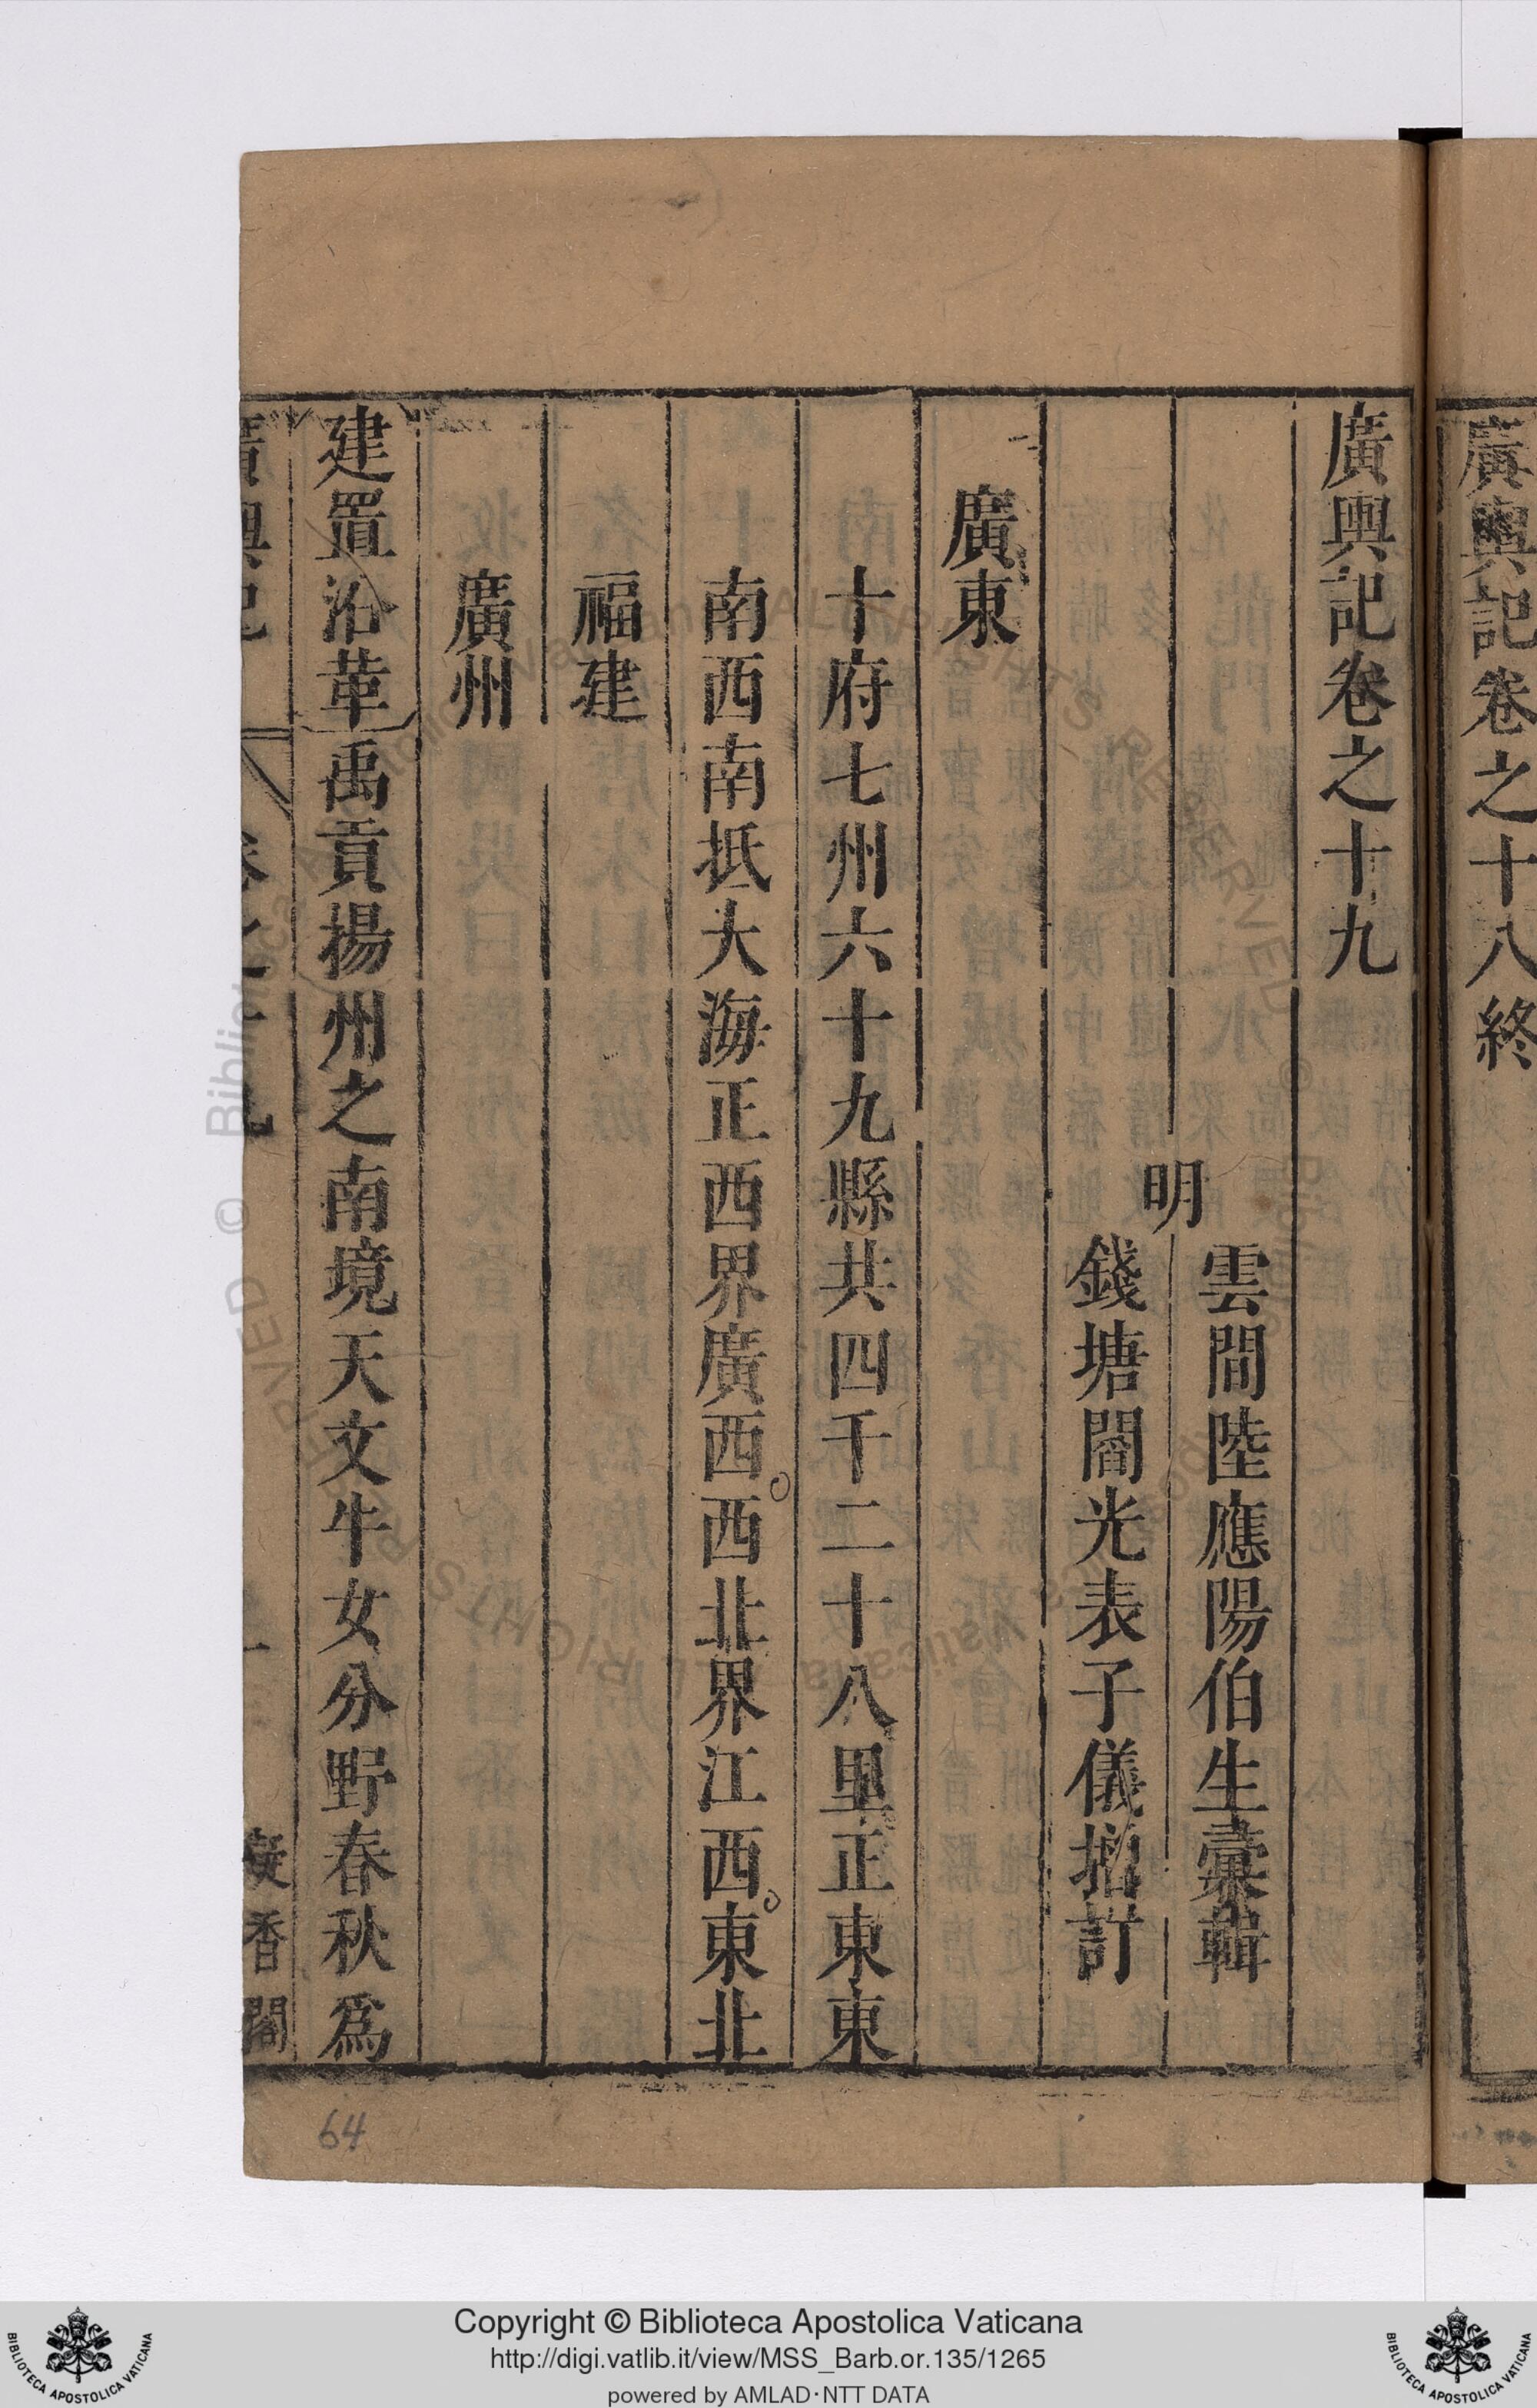 廣輿記卷之十八終
廣輿記卷之十九
明
雲間陸應陽伯生彙輯
錢塘閻光表子儀搃訂
廣東
十府七州六十九縣共四千二十八里正東東
南西南抵大海正西界廣西西北界江西東北
福建
廣州
建置沿革禹貢揚州之南境天文牛女分野春秋爲
廣輿記 卷之十九 一 凝香閣
64
Copyright © Biblioteca Apostolica Vaticana
http://digi.vatlib.it/view/MSS_Barb.or.135/1265
powered by AMLAD·NTT DATA
BIBLIOTECA APOSTOLICA VATICANA
BIBLIOTECA APOSTOLICA VATICANA